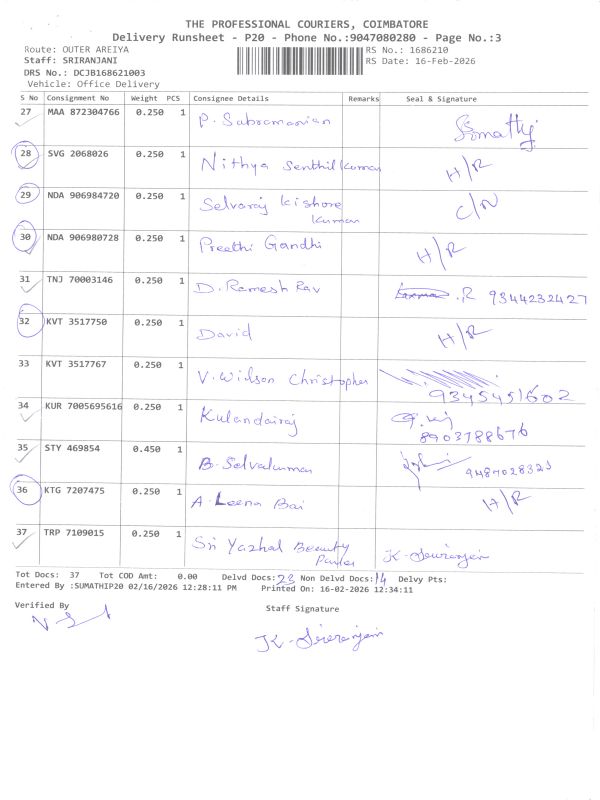 THE PROFESSIONAL COURIERS, COIMBATORE
Delivery Runsheet - P20 - Phone No.:9047080280 - Page No.:3
Route: OUTER AREIYA RS No.: 1686210
Staff: SRIRANJANI RS Date: 16-Feb-2026
DRS No.: DCJB168621003
Vehicle: Office Delivery
S No Consignment No Weight PCS Consignee Details Remarks Seal & Signature
27 MAA 872304766 0.250 1 P. Subramanian Sumathy
28 SVG 2068026 0.250 1 Nithya Senthil kumar H/R
29 NDA 906984720 0.250 1 Selvaraj Kishore C/N
kumar
30 NDA 906980728 0.250 1 Preethi Gandhi H/R
31 TNJ 70003146 0.250 1 D. Ramesh Rav .R 9344232427
32 KVT 3517750 0.250 1 David H/R
33 KVT 3517767 0.250 1 V. Wilson Christopher
9345451602
34 KUR 7005695616 0.250 1 Kulandairaj
8903788676
35 STY 469854 0.450 1 B. Selvakumar 9487028323
36 KTG 7207475 0.250 1 A. Leena Bai H/R
37 TRP 7109015 0.250 1 Sri Yazhal Beauty K- Sriranjani
Parlor
Tot Docs: 37 Tot COD Amt: 0.00 Delvd Docs: 23 Non Delvd Docs: 14 Delvy Pts:
Entered By :SUMATHIP20 02/16/2026 12:28:11 PM Printed On: 16-02-2026 12:34:11
Verified By Staff Signature
K- Sriranjani